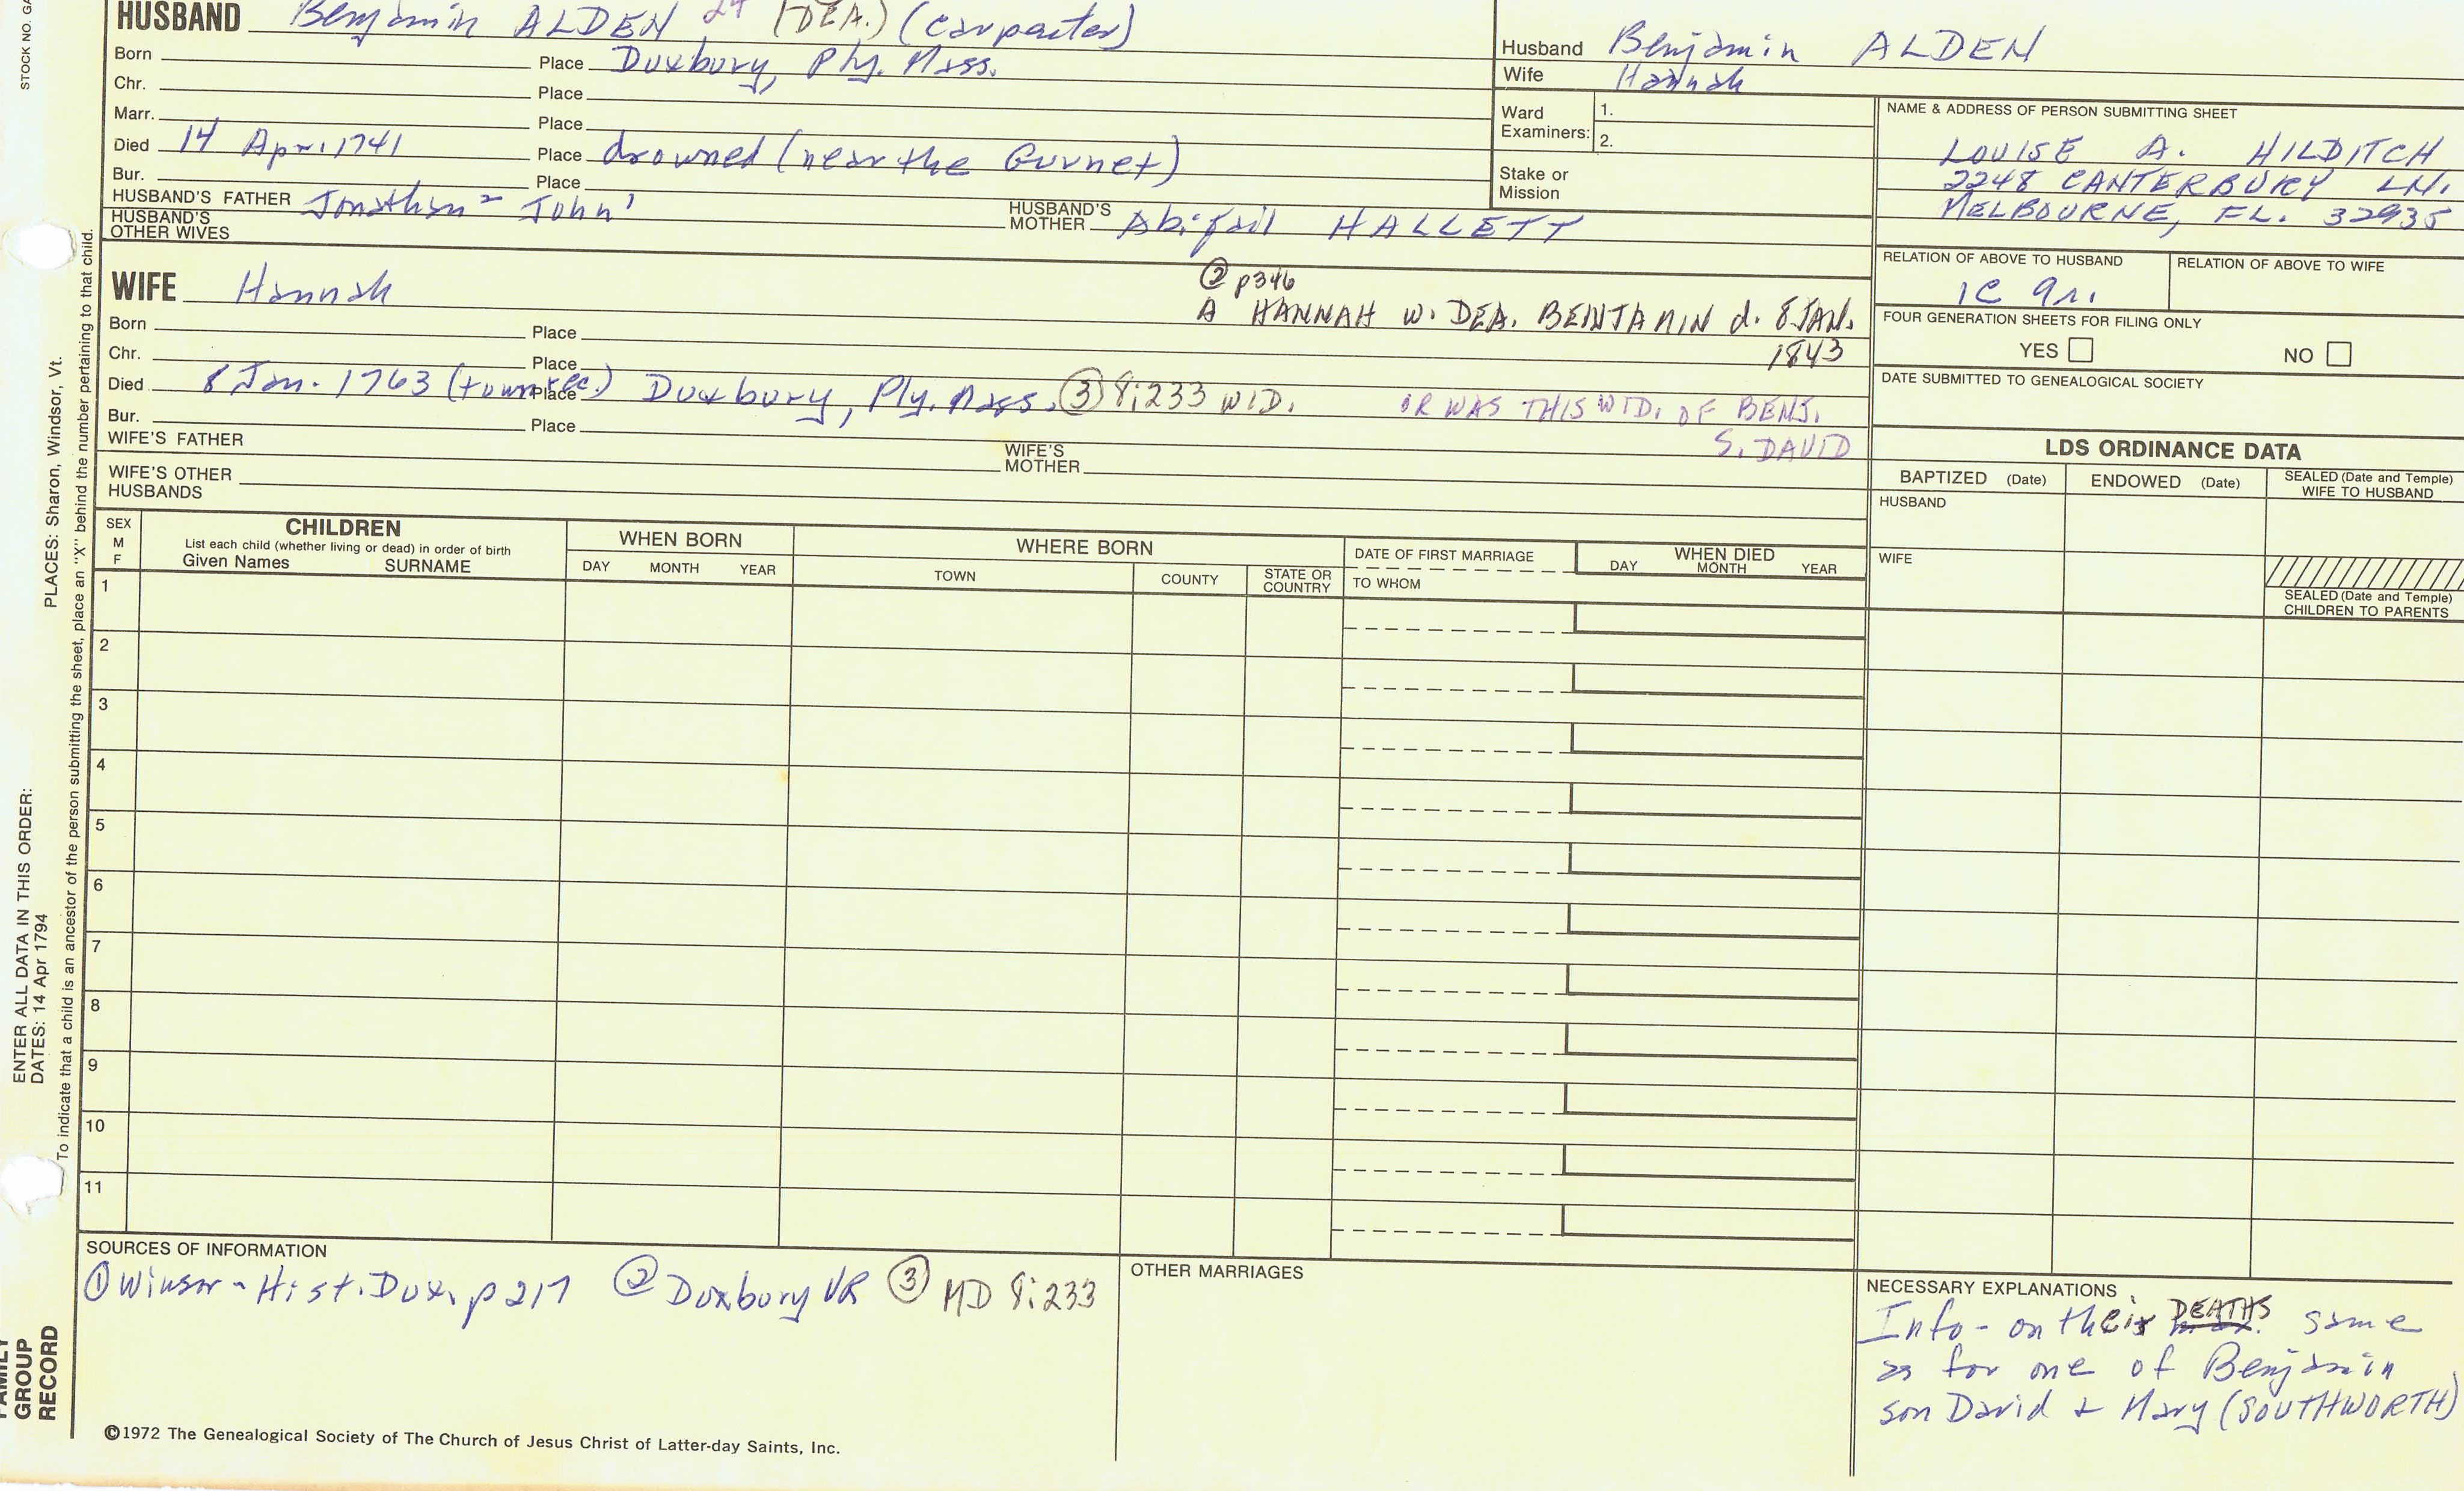 STOCK NO. GA
HUSBAND Benjamin ALDEN (DEA.) (carpenter)
Born Place Duxbury, Ply. Mass.
Chr. Place
Marr. Place
Died 14 Apr. 1741 Place drowned (near the Gurnet)
Bur. Place
HUSBAND'S FATHER Jonathan² John¹ HUSBAND'S MOTHER Abigail HALLETT
HUSBAND'S OTHER WIVES
Husband Benjamin ALDEN
Wife Hannah
Ward Examiners: 1.
2.
Stake or Mission
NAME & ADDRESS OF PERSON SUBMITTING SHEET
LOUISE A. HILDITCH
2248 CANTERBURY LN.
MELBOURNE, FL. 32935
RELATION OF ABOVE TO HUSBAND RELATION OF ABOVE TO WIFE
1C 9r.
FOUR GENERATION SHEETS FOR FILING ONLY
YES NO
DATE SUBMITTED TO GENEALOGICAL SOCIETY
WIFE Hannah
② p346
A HANNAH w. DEA. BENJAMIN d. 8 JAN.
1843
Born Place
Chr. Place
Died 8 Jan. 1763 (town rec.) Place Duxbury, Ply. Mass. ③ 8:233 WID.
OR WAS THIS WID. OF BENJ.
S. DAVID
Bur. Place
WIFE'S FATHER WIFE'S MOTHER
WIFE'S OTHER HUSBANDS
LDS ORDINANCE DATA
BAPTIZED (Date) ENDOWED (Date) SEALED (Date and Temple) WIFE TO HUSBAND
HUSBAND
WIFE
SEALED (Date and Temple) CHILDREN TO PARENTS
SEX M F
CHILDREN
List each child (whether living or dead) in order of birth
Given Names SURNAME
WHEN BORN
DAY MONTH YEAR
WHERE BORN
TOWN COUNTY STATE OR COUNTRY
DATE OF FIRST MARRIAGE
TO WHOM
WHEN DIED
DAY MONTH YEAR
1
2
3
4
5
6
7
8
9
10
11
SOURCES OF INFORMATION
① Winsor - Hist. Dux. p 217 ② Duxbury VR ③ MD 8:233
OTHER MARRIAGES
NECESSARY EXPLANATIONS
Info - on their DEATHS same
as for one of Benjamin
son David & Mary (SOUTHWORTH)
©1972 The Genealogical Society of The Church of Jesus Christ of Latter-day Saints, Inc.
PLACES: Sharon, Windsor, Vt.
ENTER ALL DATA IN THIS ORDER:
DATES: 14 Apr 1794
To indicate that a child is an ancestor of the person submitting the sheet, place an "X" behind the number pertaining to that child.
FAMILY
GROUP
RECORD